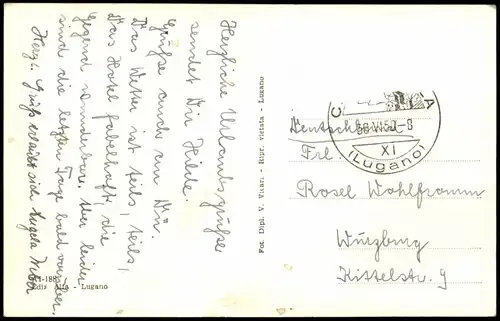 Herzliche Urlaubsgrüße
sendet Dir Hilde.
Grüße auch an Dir.
Das Wetter ist teils, teils,
Das Hotel fabelhaft, die
Gegend wunderbar. Nur leider
sind die letzten Tage bald vorüber.
Herzl. Gruß erlaubt sich Angela Weber
Edit. Alfa - Lugano
Fot. Dipl. V. Vicari - Ripr. vietata - Lugano
XI
(Lugano)
Deutschland
Frl.
Rosel Wohlfromm
Würzburg
Kittelstr. 9